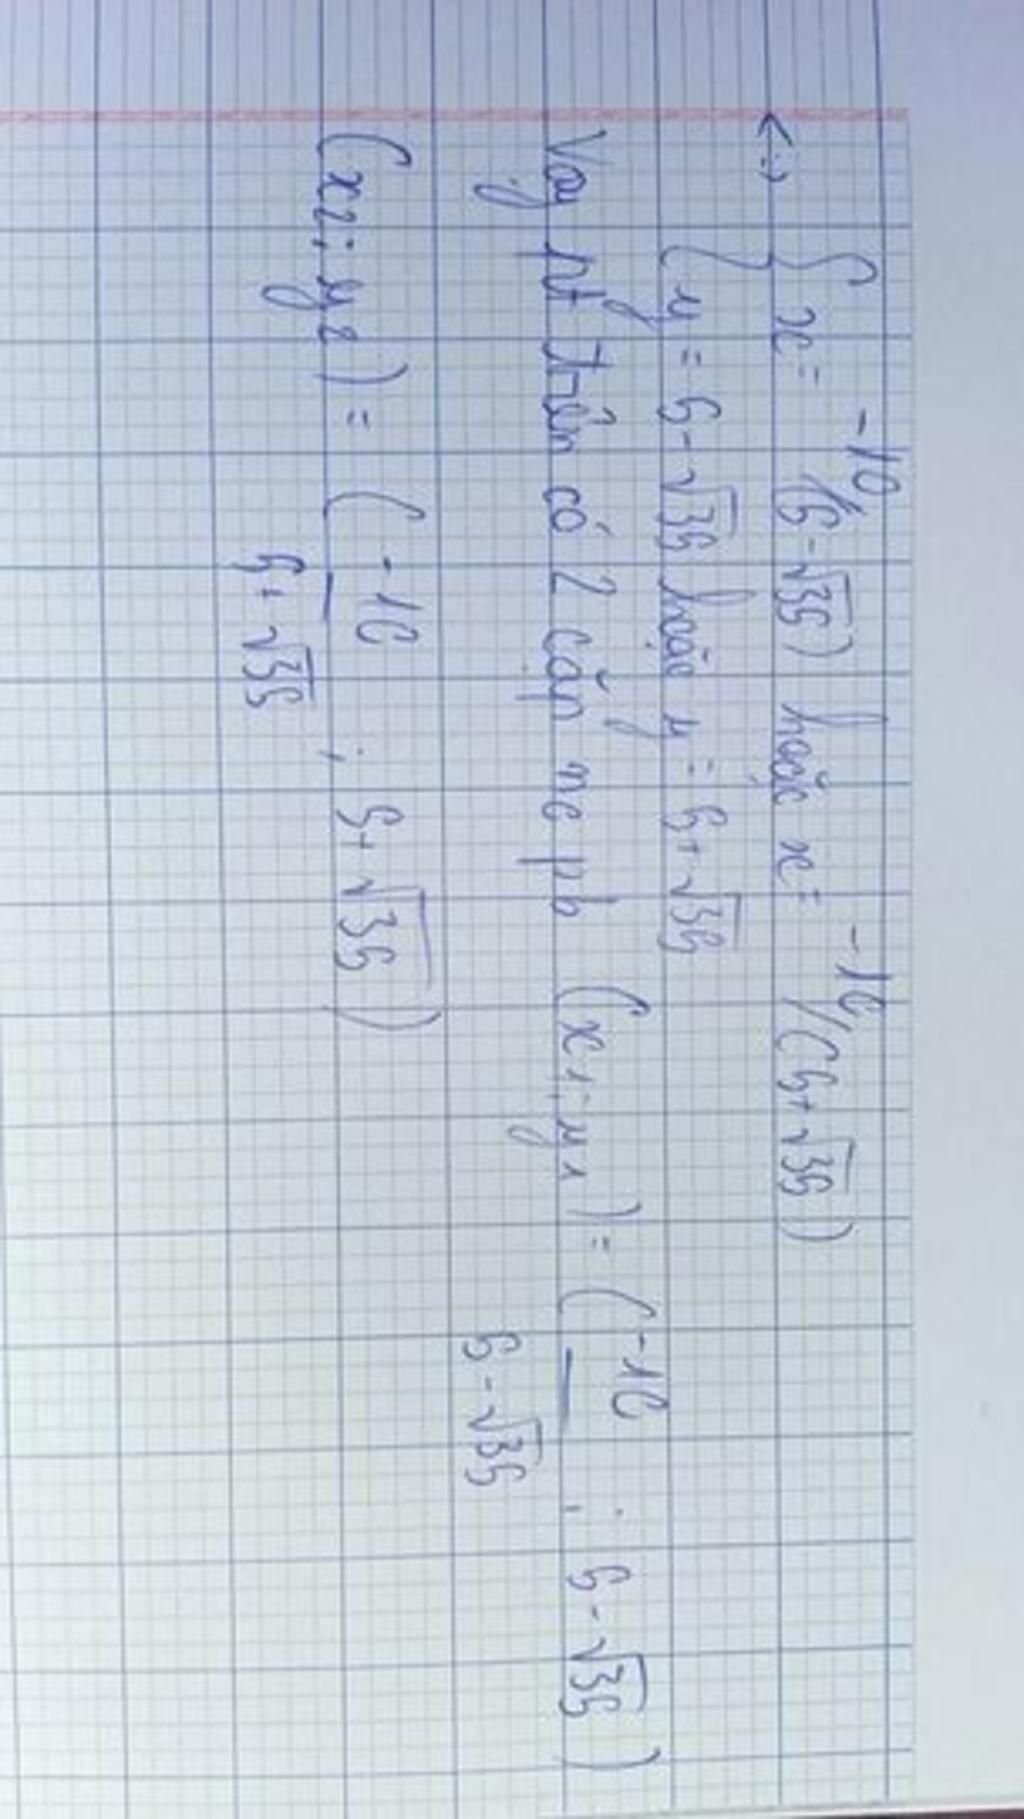 <=> { x = -10/(5-√35) hoặc x = -10/(5+√35)
{ y = 5-√35 hoặc y = 5+√35
Vậy pt trên có 2 cặp no pb (x1; y1) = (-10/5-√35 ; 5-√35)
(x2; y2) = (-10/5+√35 ; 5+√35)